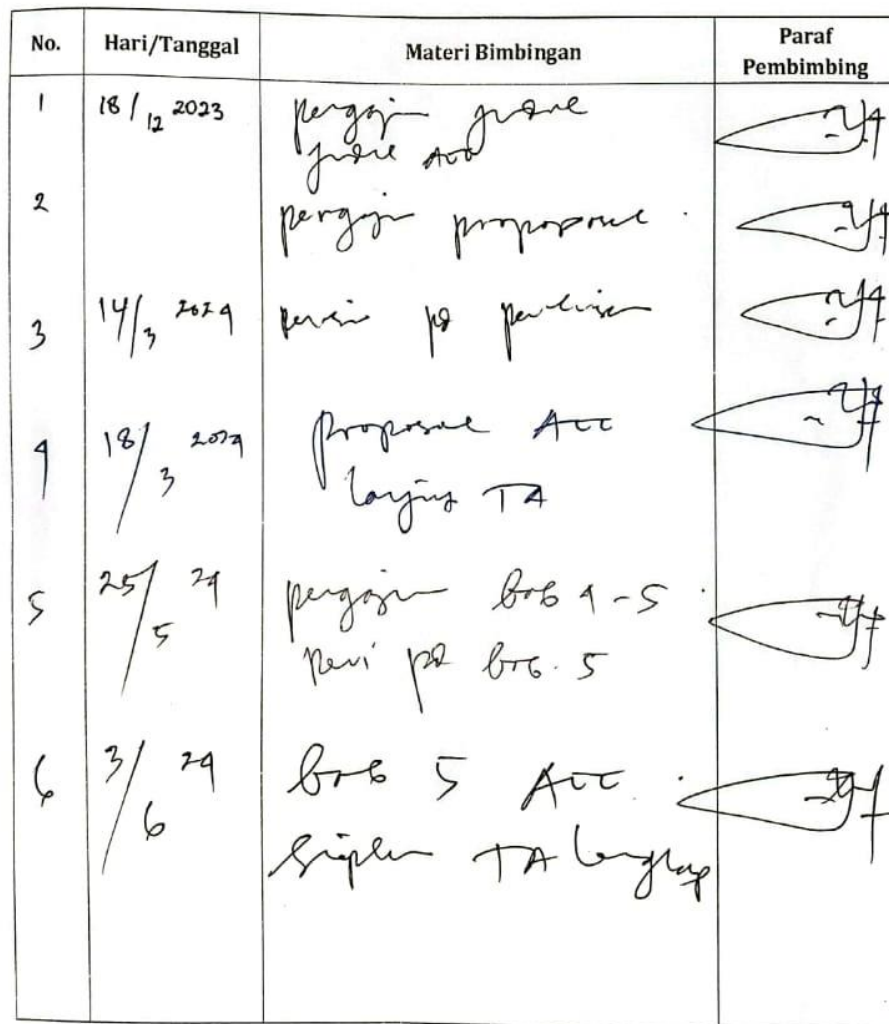 No. Hari/Tanggal Materi Bimbingan Paraf Pembimbing
1 18/12 2023 pengajuan judul
judul Acc
2 pengajuan proposal.
3 14/3 2024 revisi pd penulisan
4 18/3 2024 proposal ACC
lanjut TA
5 25/5 24 pengajuan bab 4-5.
revisi pd bab. 5
6 3/6 24 bab 5 ACC.
Siapkan TA lengkap